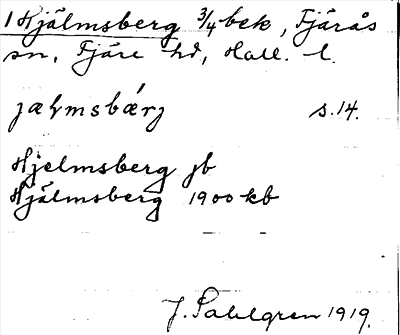 1 Hjälmsberg 3/4 bek, Fjärås
sn, Fjäre hd, Hall. l.
jæļmsbærj s. 14.
Hjelmsberg jb
Hjälmsberg 1900 kb
J. Sahlgren 1919.